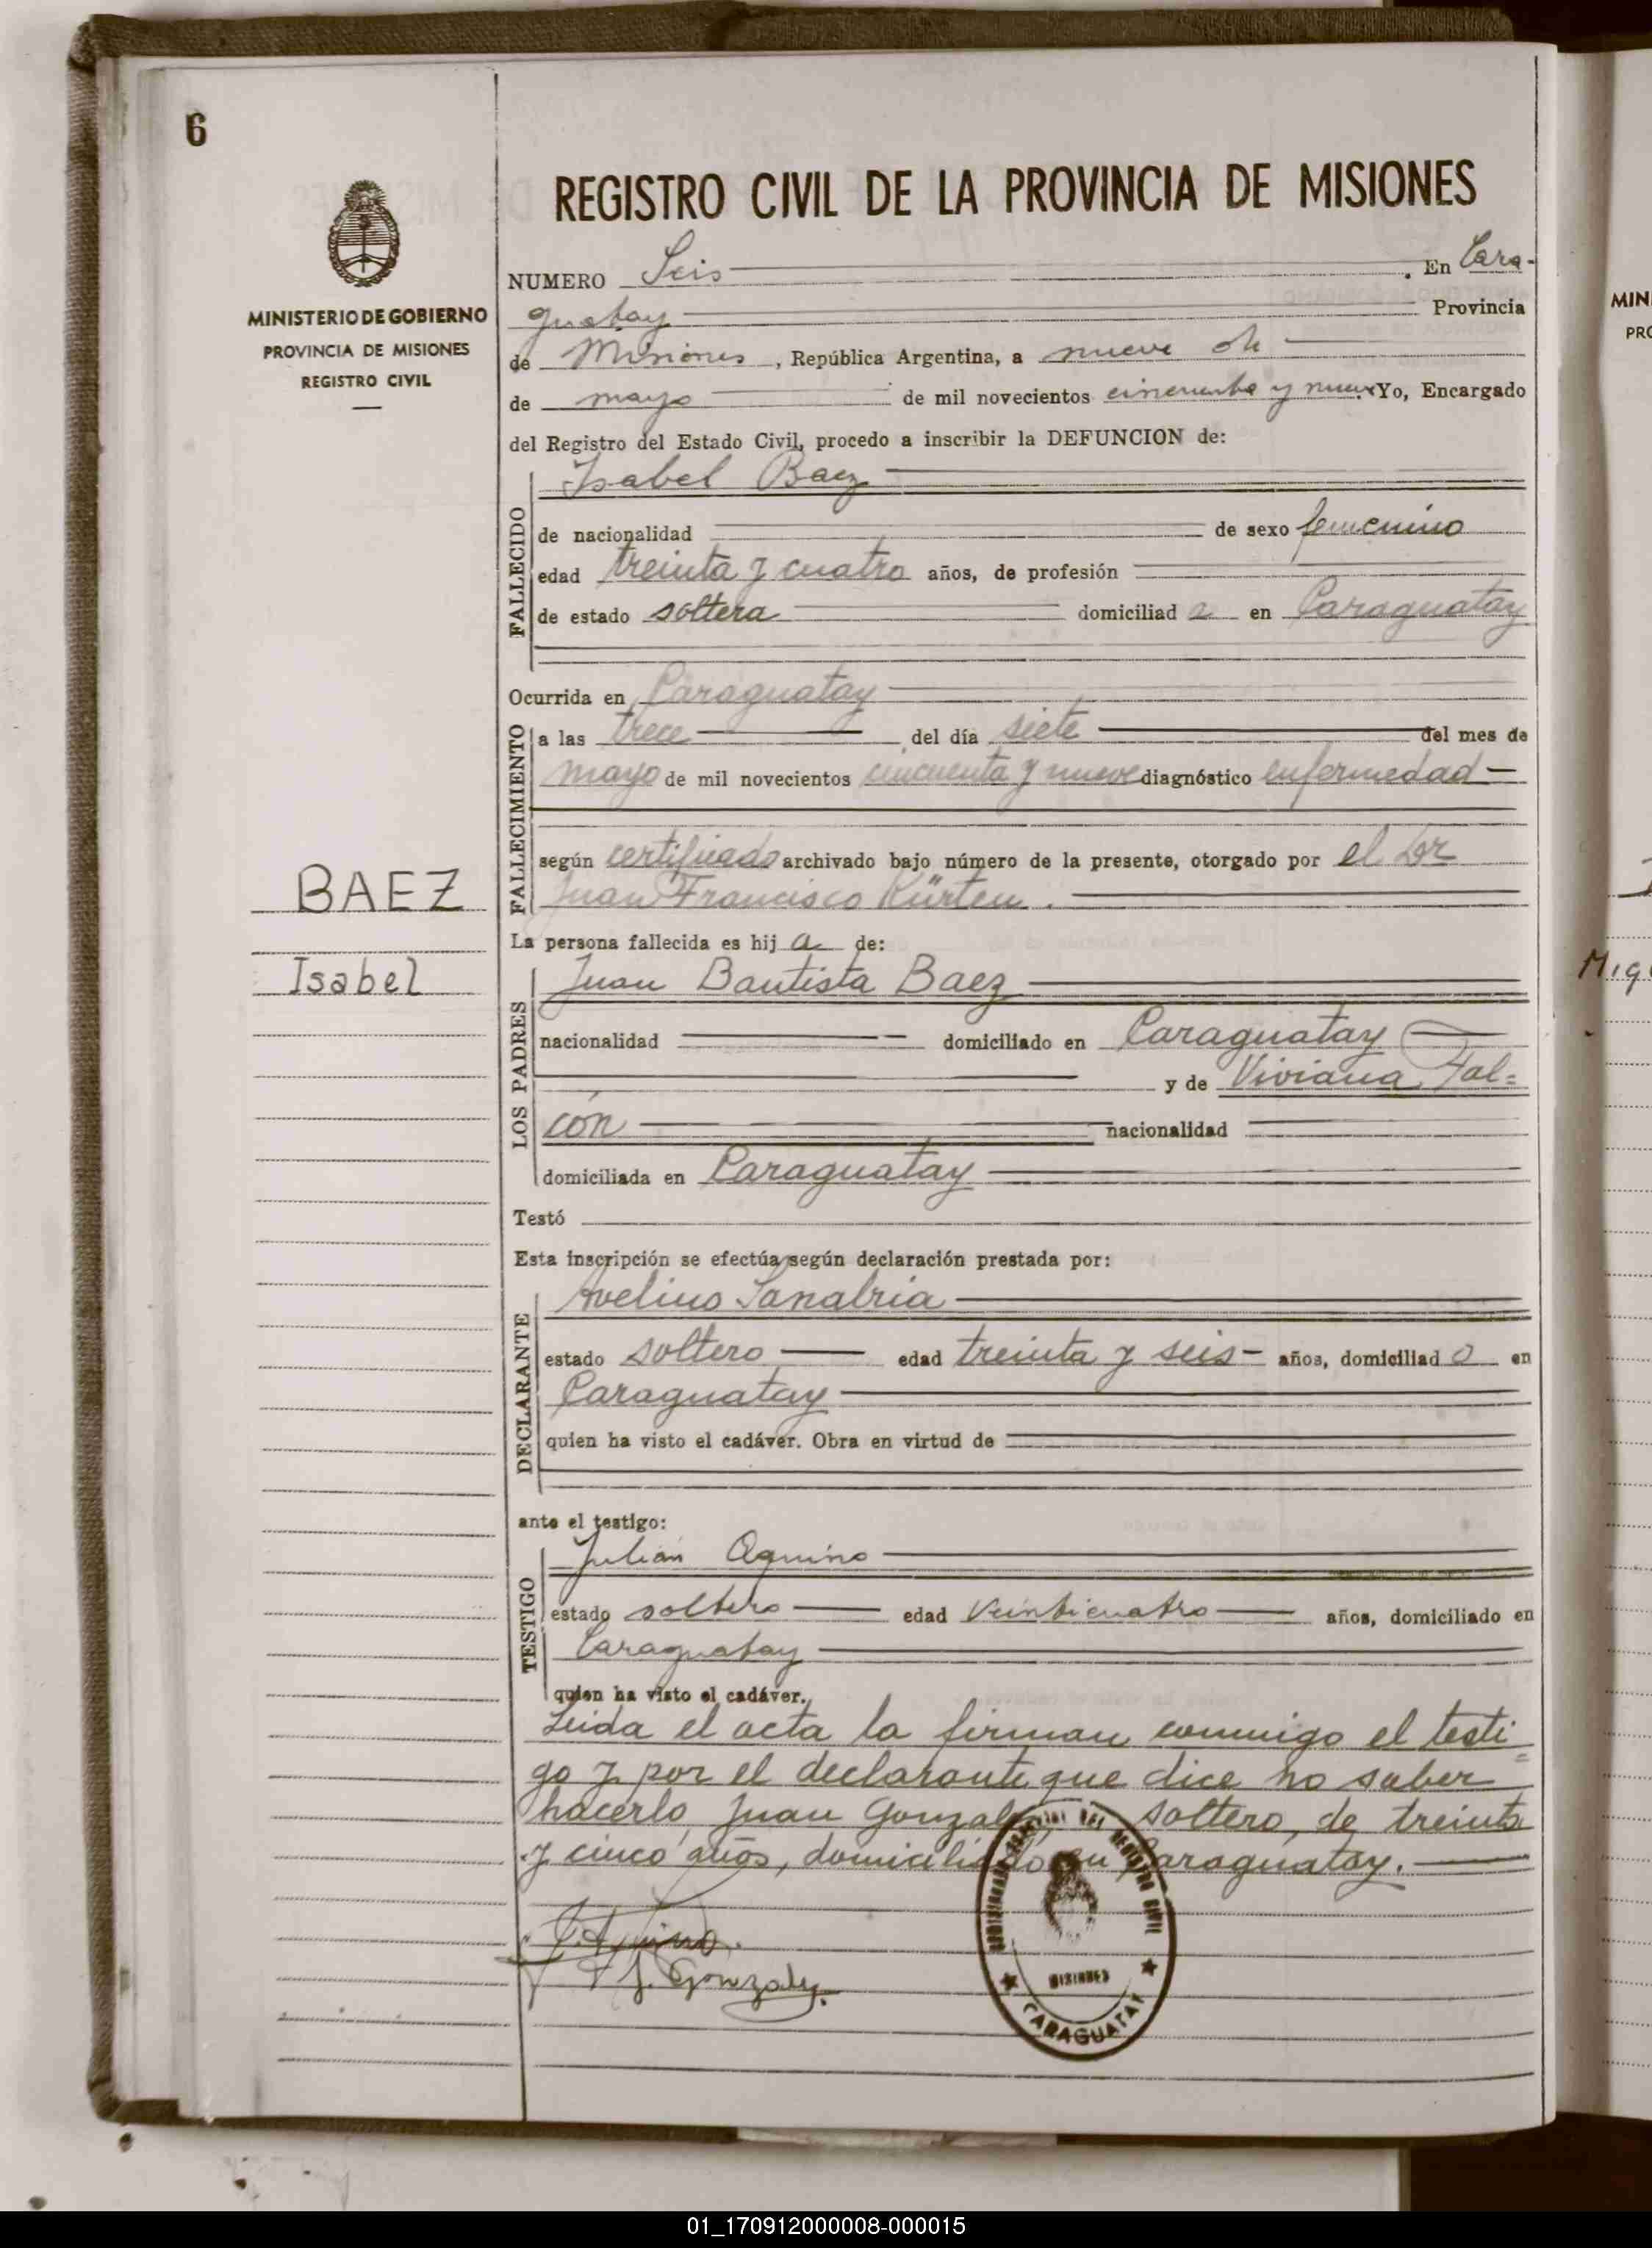 6
REGISTRO CIVIL DE LA PROVINCIA DE MISIONES
MINISTERIO DE GOBIERNO
PROVINCIA DE MISIONES
REGISTRO CIVIL
NUMERO Seis . En Cara-
guatay Provincia
de Misiones, República Argentina, a nueve de
de mayo de mil novecientos cincuenta y nueve Yo, Encargado
del Registro del Estado Civil, procedo a inscribir la DEFUNCION de:
FALLECIDO
Isabel Baez
de nacionalidad de sexo femenino
edad treinta y cuatro años, de profesión
de estado soltera domiciliad a en Caraguatay
Ocurrida en Caraguatay
FALLECIMIENTO
a las trece del día siete del mes de
mayo de mil novecientos cincuenta y nueve diagnóstico enfermedad
según certificado archivado bajo número de la presente, otorgado por el Dr
Juan Francisco Kürten.
BAEZ
Isabel
La persona fallecida es hij a de:
LOS PADRES
Juan Bautista Baez
nacionalidad domiciliado en Caraguatay
y de Viviana Fal=
cón nacionalidad
domiciliada en Caraguatay
Testó
Esta inscripción se efectúa según declaración prestada por:
DECLARANTE
Avelino Sanabria
estado soltero edad treinta y seis años, domiciliad o en
Caraguatay
quien ha visto el cadáver. Obra en virtud de
ante el testigo:
TESTIGO
Julián Aquino
estado soltero edad veinticuatro años, domiciliado en
Caraguatay
quien ha visto el cadáver.
Leida el acta la firman conmigo el testi=
go y por el declarante que dice no saber
hacerlo, Juan Gonzalez, soltero, de treinta
y cinco años, domiciliado en Caraguatay.
J. Aquino.
J. Gonzalez.
REGISTRO CIVIL
MISIONES
CARAGUATAY
MIN
PRO
Mig
01_170912000008-000015